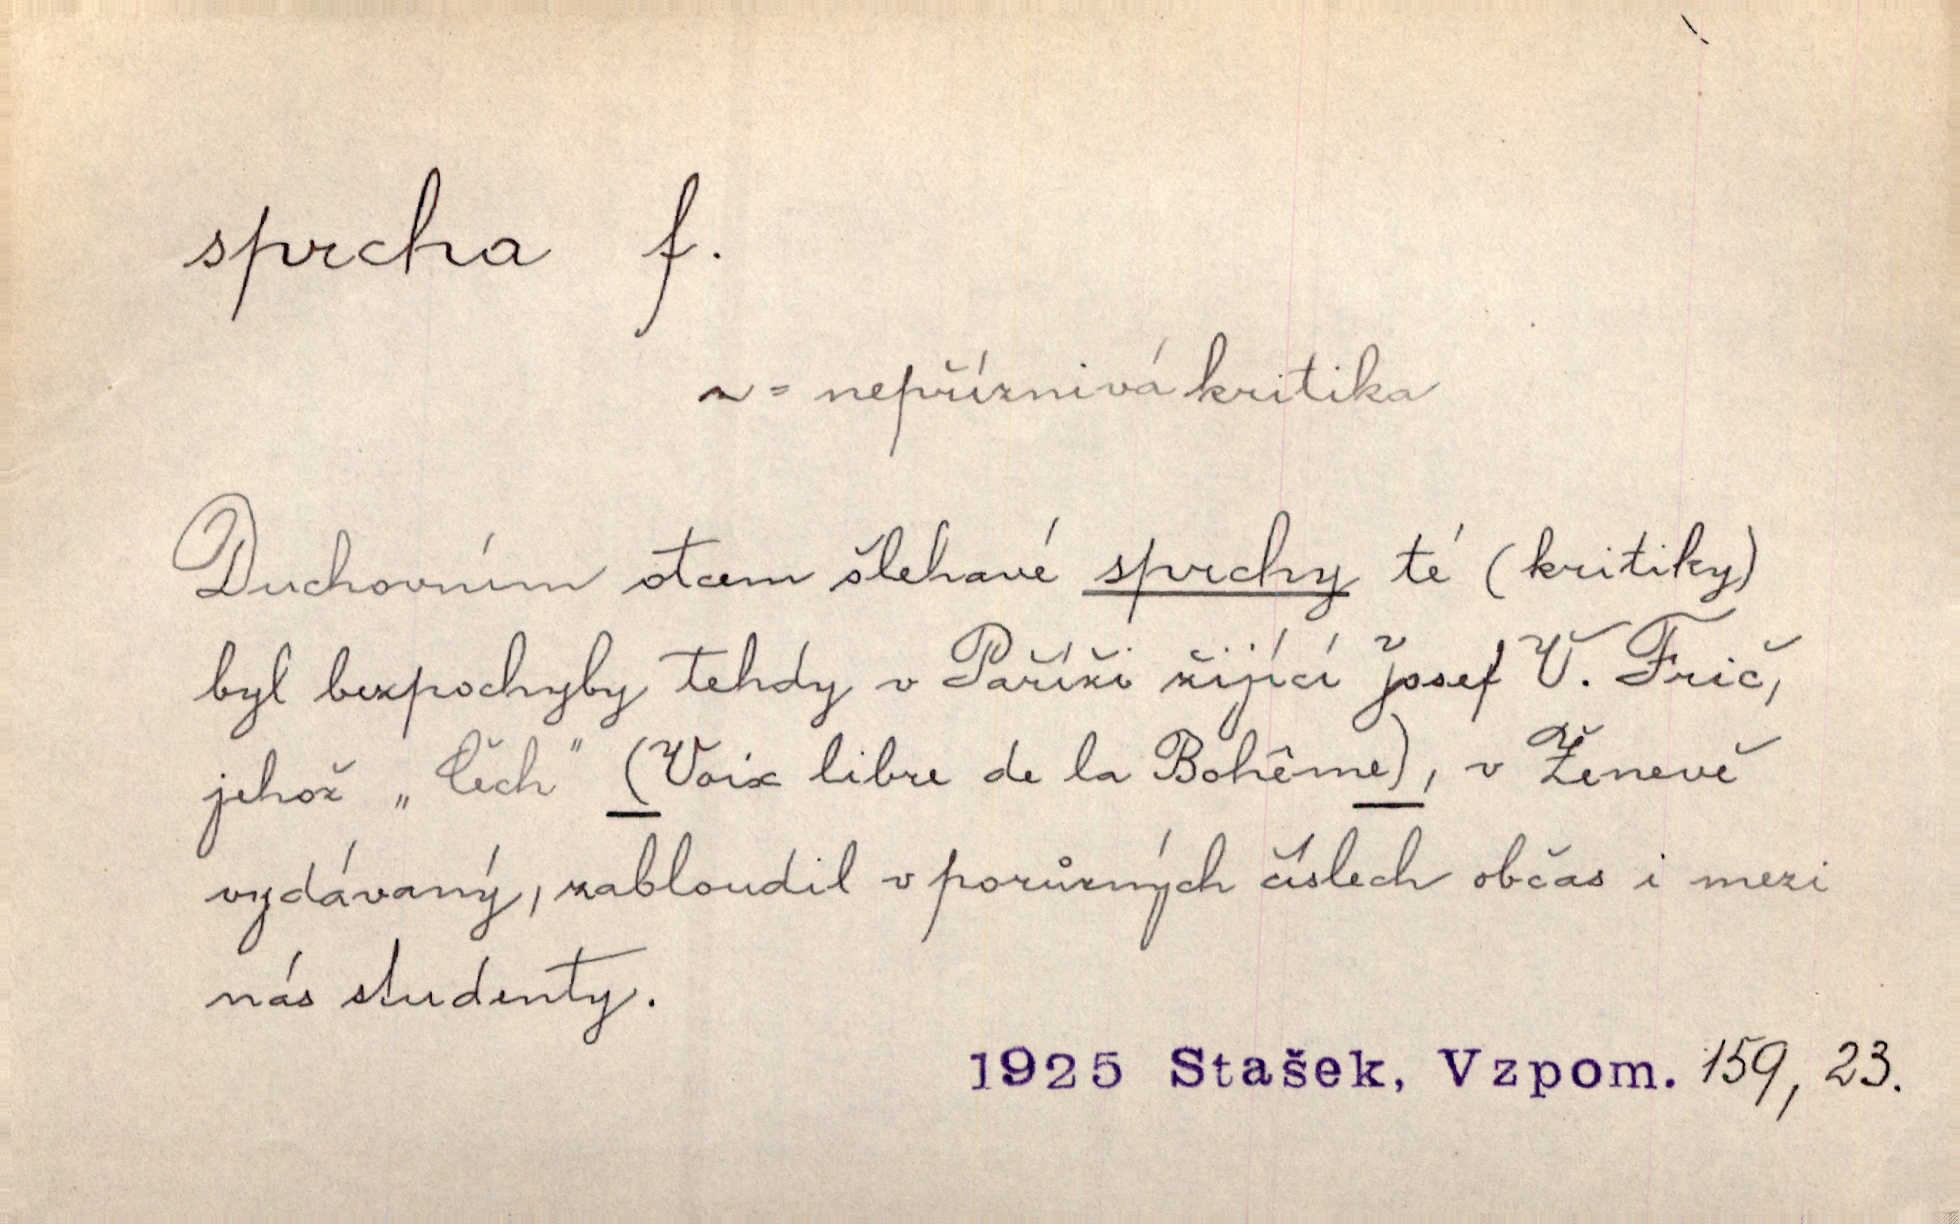 sprcha f.
~ = nepříznivá kritika
Duchovním otcem šlehavé sprchy té (kritiky)
byl bezpochyby tehdy v Paříži žijící Josef V. Frič,
jehož „Čech" (Voix libre de la Bohême), v Ženevě
vydávaný, zabloudil v porůzných číslech občas i mezi
nás studenty.
1925 Stašek, Vzpom. 159, 23.